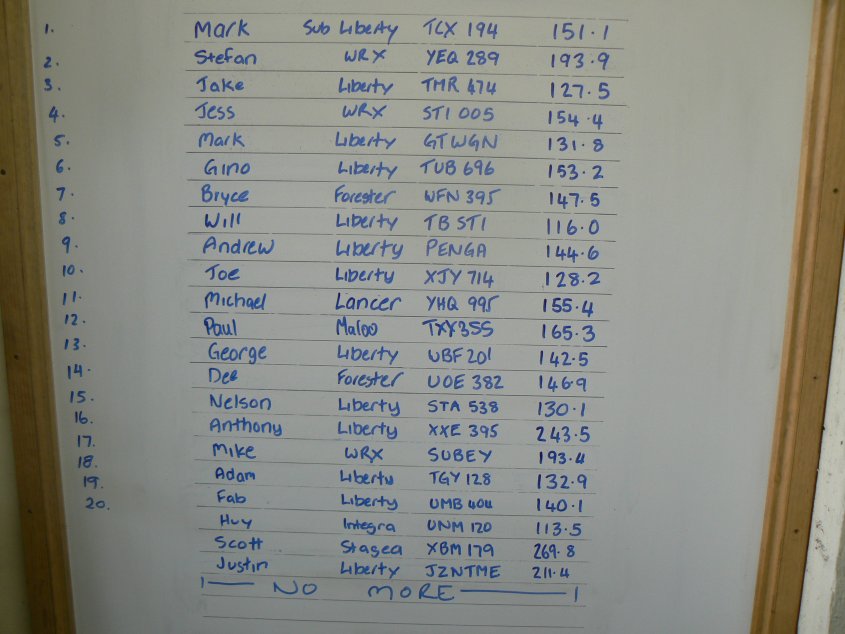 1. Mark Sub Liberty TCX 194 151.1
2. Stefan WRX YEQ 289 193.9
3. Jake Liberty TMR 474 127.5
4. Jess WRX STI 005 154.4
5. Mark Liberty GTWGN 131.8
6. Gino Liberty TUB 696 153.2
7. Bryce Forester WFN 395 147.5
8. Will Liberty TB STI 116.0
9. Andrew Liberty PENGA 144.6
10. Joe Liberty XJY 714 128.2
11. Michael Lancer YHQ 995 155.4
12. Paul Maloo TXY355 165.3
13. George Liberty WBF 201 142.5
14. Dee Forester UOE 382 146.9
15. Nelson Liberty STA 538 130.1
16. Anthony Liberty XXE 395 243.5
17. Mike WRX SUBEY 193.4
18. Adam Liberty TGY 128 132.9
19. Fab Liberty UMB 404 140.1
20. Huy Integra UNM 120 113.5
Scott Stagea XBM 179 269.8
Justin Liberty JZNTME 211.4
NO MORE